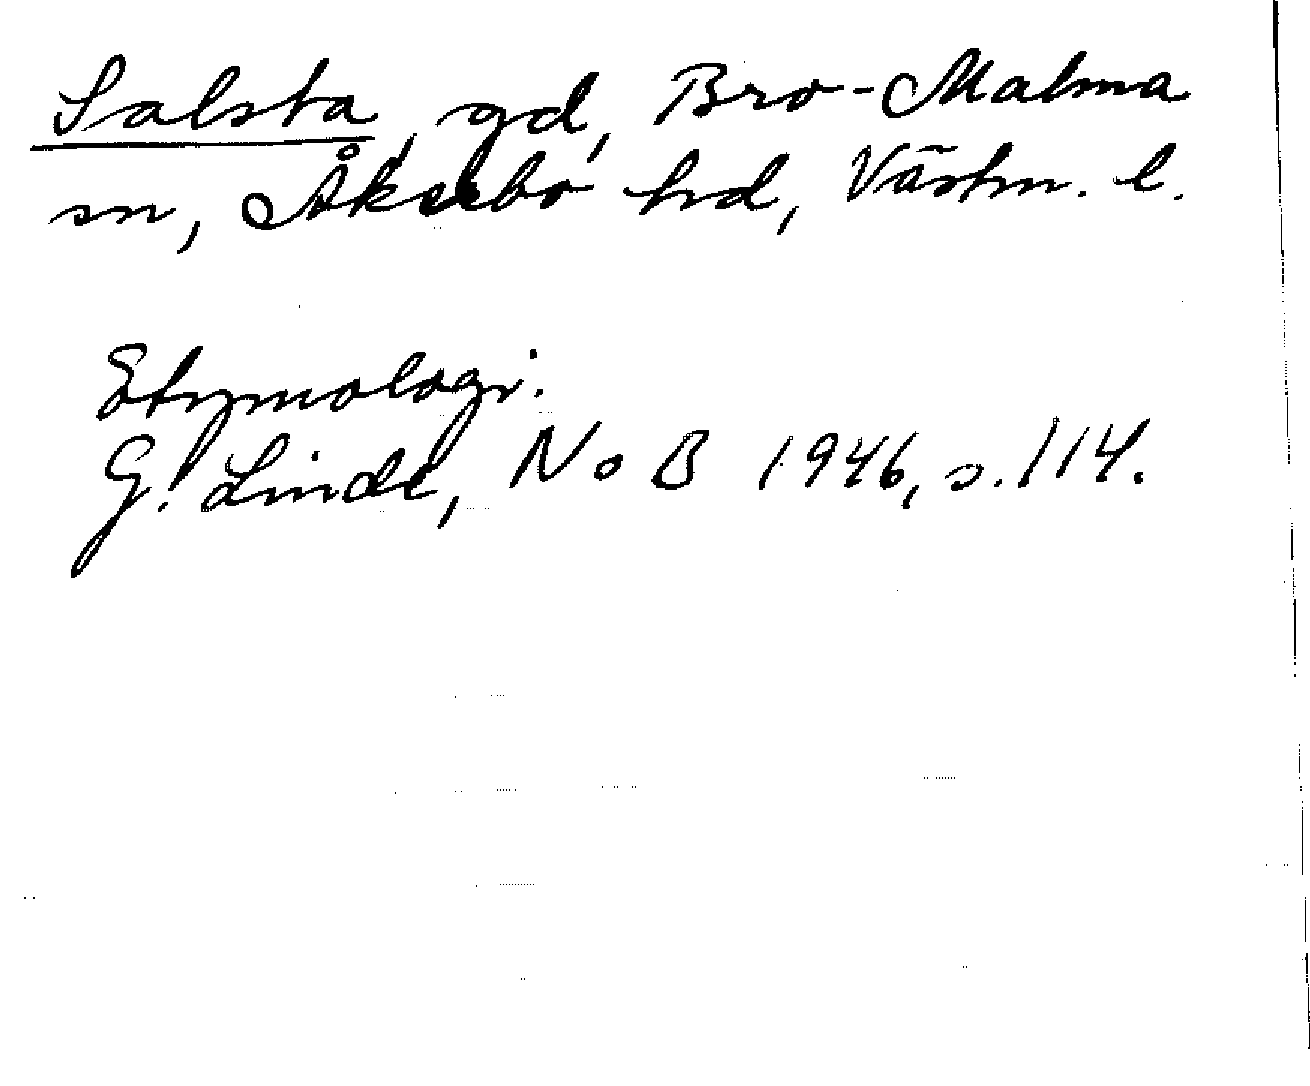 Salsta, gd, Bro-Malma
sn, Åkerbo hd, Västm. l.
Etymologi.
G. Linde, NoB 1946, s. 114.